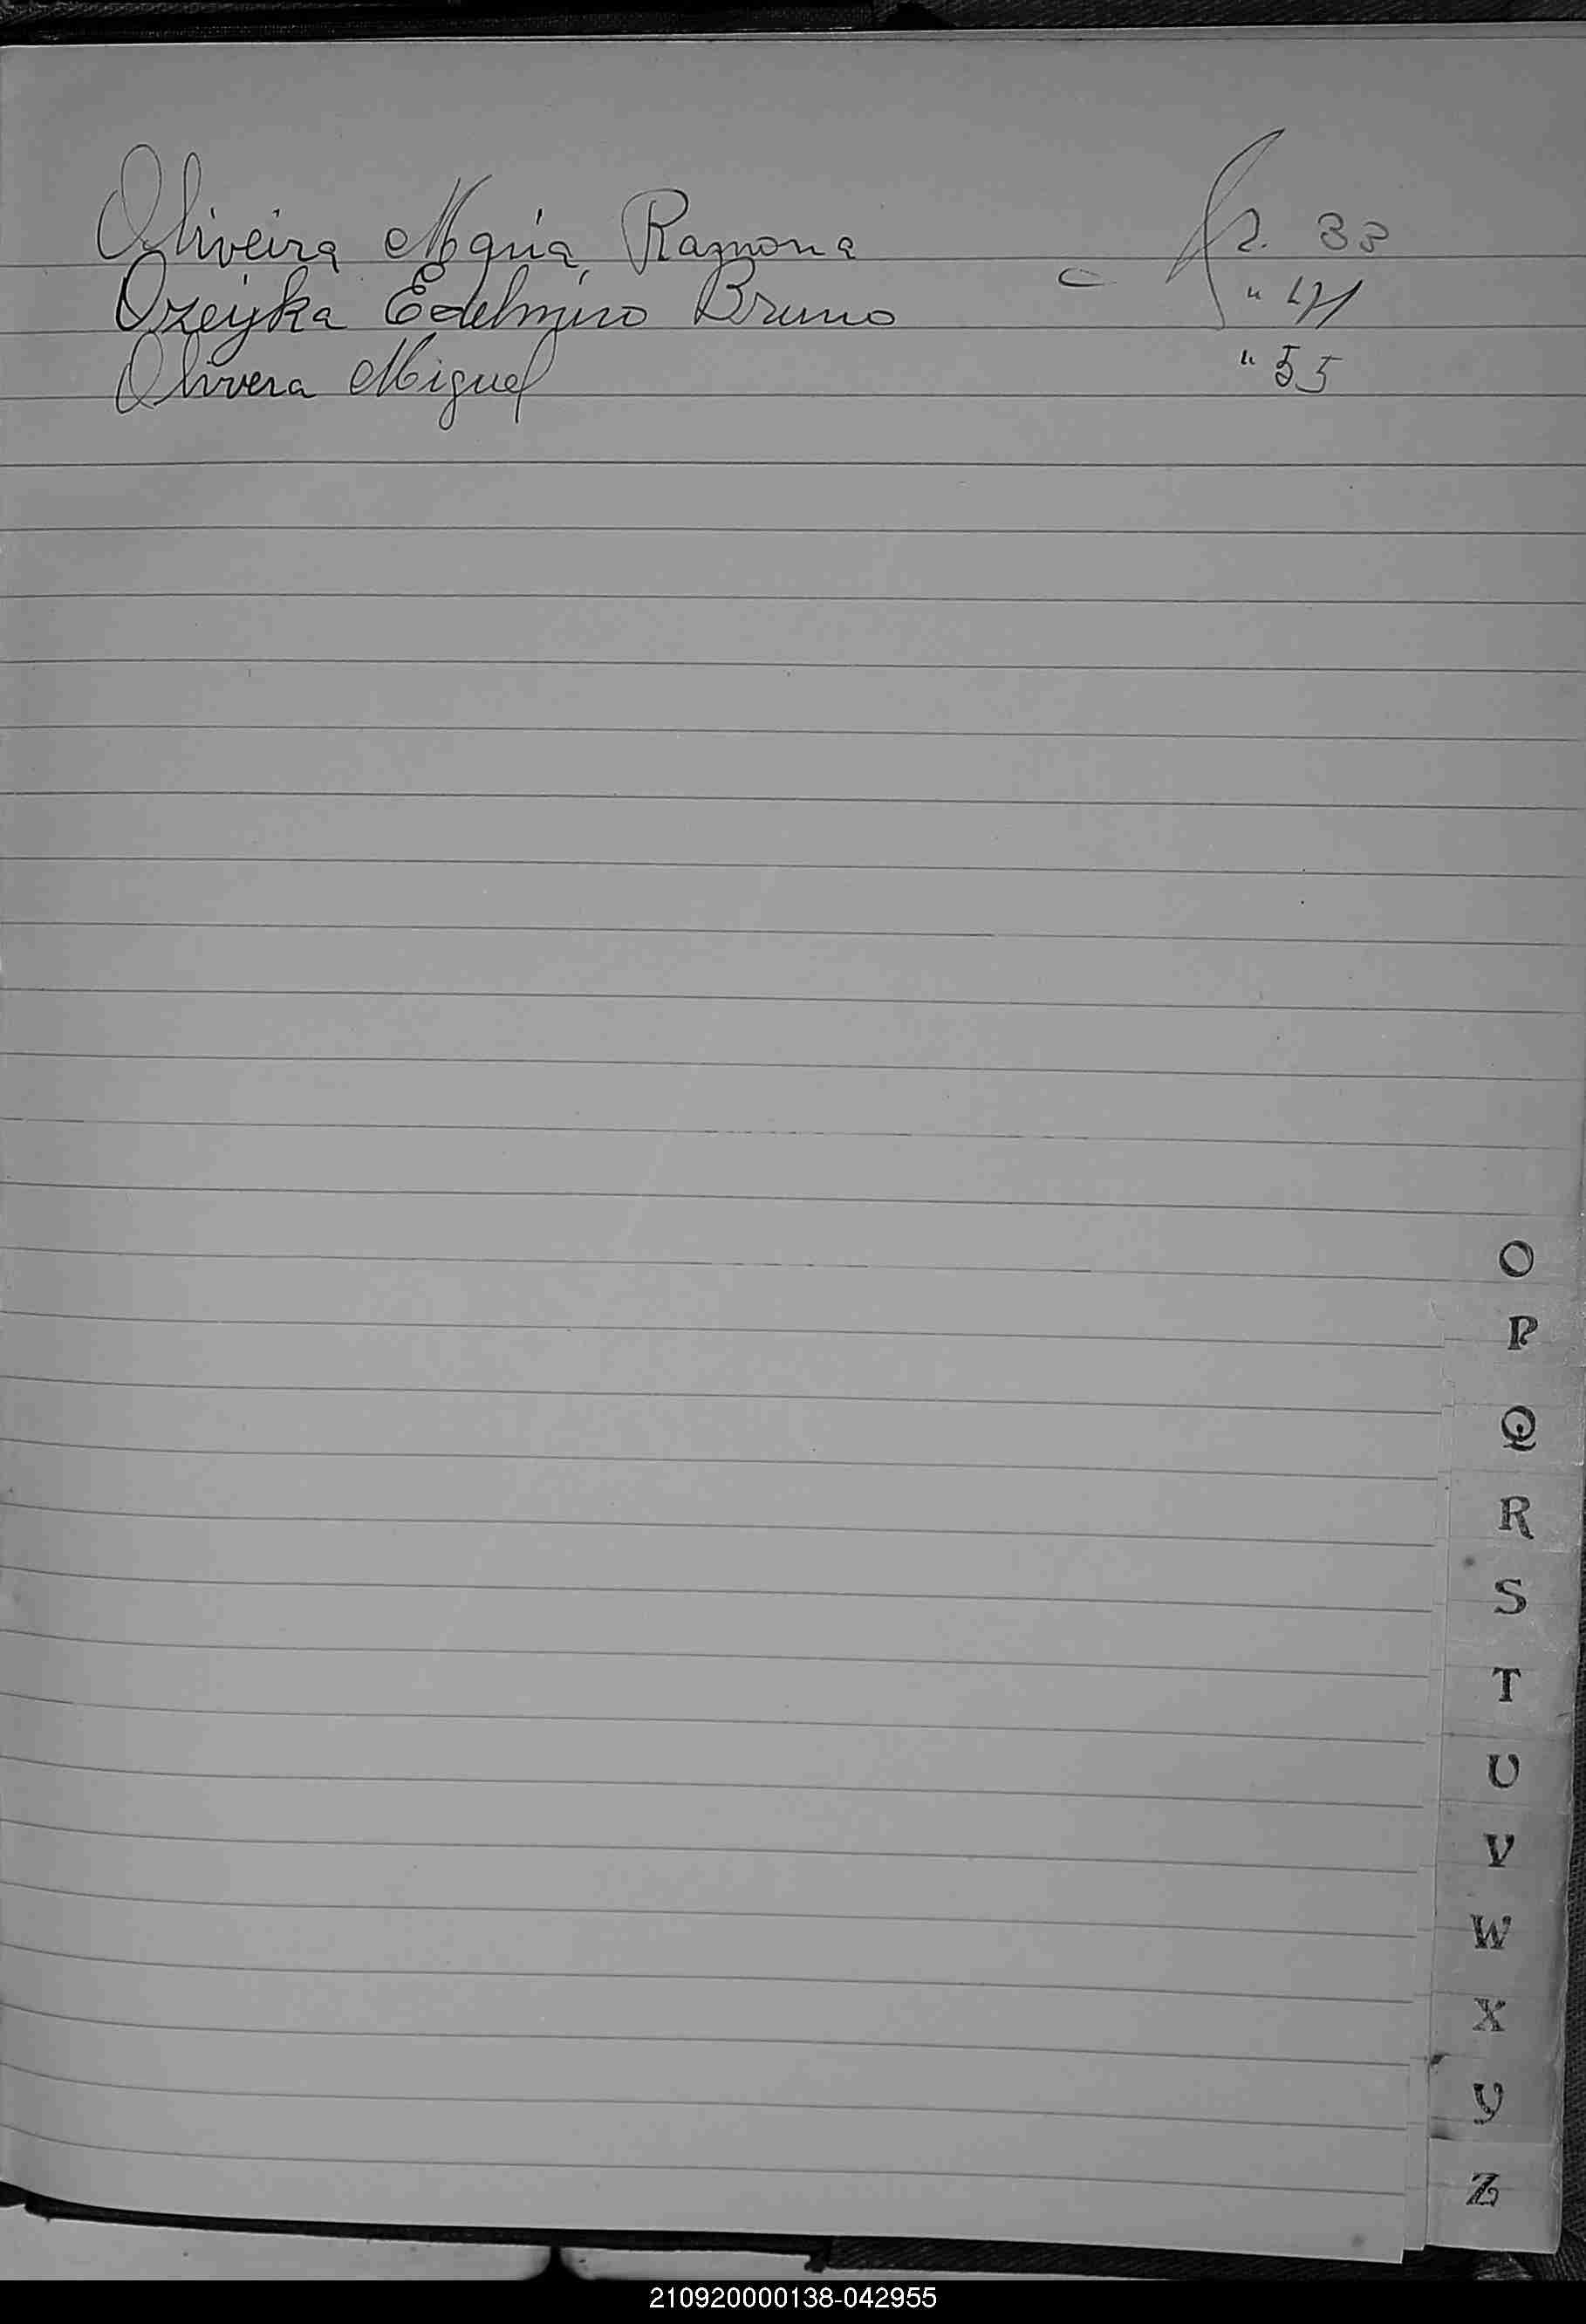 Oliveira Maria Ramona f 2. 33
Ozeyka Edelmiro Bruno " 41
Olivera Miguel " 55
O
P
Q
R
S
T
U
V
W
X
Y
Z
210920000138-042955